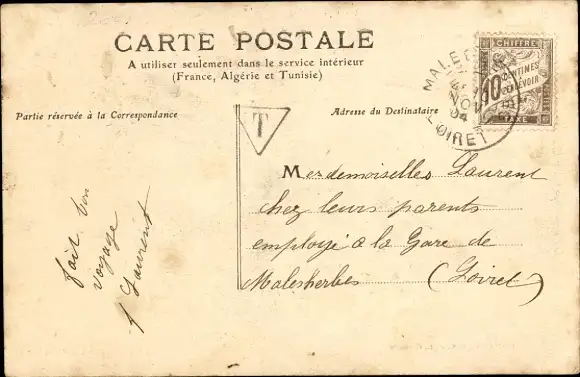 CARTE POSTALE
A utiliser seulement dans le service intérieur
(France, Algérie et Tunisie)
Partie réservée à la Correspondance
Adresse du Destinataire
CHIFFRE
10 CENTIMES
A PERCEVOIR
TAXE
NOV
04
LOIRET
T
Mesdemoiselles Laurent
chez leurs parents
employé à la Gare de
Malesherbes (Loiret)
fait bon
voyage
Laurent